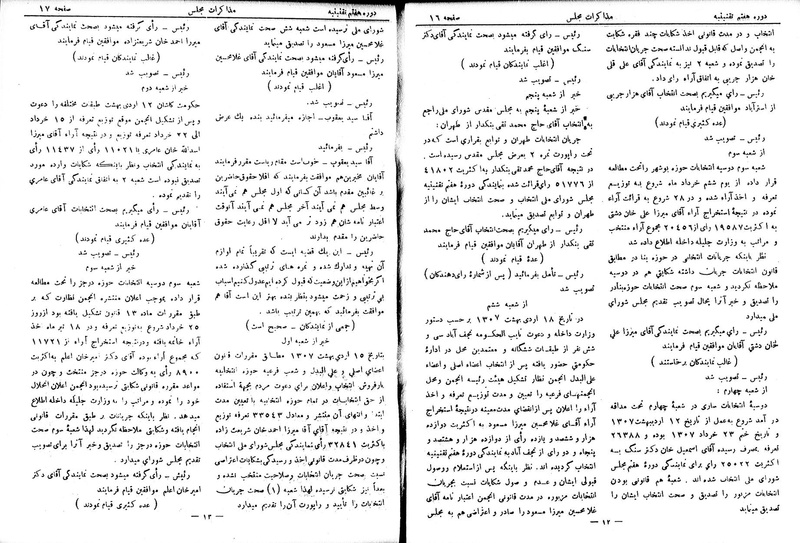 دوره هفتم تقنینیه
مذاکرات مجلس
صفحه ۱۶
انتخاب و در مدت قانونی اخذ شکایات چند فقره شکایت
به انجمن واصل که قابل قبول ندانسته صحت جریان انتخابات
را تصدیق نموده و شعبه ۲ نیز به نمایندگی آقای علی قلی
خان هزار جریبی به اتفاق آراء رأی داد.
رئیس ــ رأی میگیریم بصحت انتخاب آقای هزارجریبی
از استرآباد موافقین قیام فرمایند
(عده کثیری قیام نمودند)
رئیس ــ تصویب شد
از شعبه سوم
شعبه سوم دوسیه انتخابات حوزه بوشهر راتحت مطالعه
قرار داده از یوم ششم خرداد ماه شروع به توزیع
تعرفه و اخذ آراء شده و در ۲۸ شروع به قرائت آراء
نموده در نتیجهٔ استخراج آراء آقای میرزا علی خان دشتی
به اکثریت ۱۹۵۸۷ رأی از ۲۰۴۵۶ مجموع آراء منتخب
و مراتب به وزارت جلیله داخله اطلاع داده شد
نظر باینکه جریانات انتخابی در حوزه بنا در مطابق
قانون انتخابات جریان داشته شکایتی هم در دوسیه
ملاحظه نگردید و شعبه سوم صحت انتخابات حوزه بنادر
را تصدیق و خبر آنرا بحال تصویب تقدیم مجلس شورای
ملی میدارد
رئیس ــ رأی میگیریم بصحت نمایندگی آقای میرزا علی
خان دشتی آقایان موافقین قیام فرمایند
(غالب نمایندگان برخاستند)
رئیس ــ تصویب شد
از شعبه چهارم :
دوسیهٔ انتخابات ساری در شعبهٔ چهارم تحت مداقه
در آمد شروع به عمل از تاریخ ۱۲ اردیبهشت ۱۳۰۷
و تاریخ ختم ۲۳ خرداد ۱۳۰۷ بوده و ۲۹۳۸۸
تعرفه بمصرف رسیده آقای اسمعیل خان دکتر سنگ به
اکثریت ۲۵۰۲۲ رأی برای نمایندگی دوره هفتم مجلس
شورای ملی انتخاب شده اند. شعبهٔ هم قانونی بودن
انتخابات مزبور را تصدیق و صحت انتخاب ایشان را
تصدیق مینماید
رئیس ــ رأی گرفته میشود بصحت نمایندگی آقای دکتر
سنگ موافقین قیام بفرمایند
(اغلب نمایندگان قیام نمودند)
رئیس ــ تصویب شد
خبر از شعبه پنجم
خبر از شعبهٔ پنجم به مجلس مقدس شورای ملی راجع
به انتخاب آقای حاج محمد تقی بنکدار از طهران :
جریان انتخابات طهران و توابع بقراری است که در
تحت راپورت نمره ۲ بعرض مجلس مقدس رسیده است.
در نتیجه آقای حاج محمد تقی بنکدار به اکثریت ۴۱۸۰۲
از ۵۱۷۷۶ رأی قرائت شده بنمایندگی دورهٔ هفتم تقنینیه
مجلس شورای ملی انتخاب و صحت انتخاب ایشان را از
طهران و توابع تصدیق مینماید.
رئیس ــ رأی میگیریم بصحت انتخاب آقای حاج محمد
تقی بنکدار از طهران آقایان موافقین قیام فرمایند
(عدهٔ قیام نمودند)
رئیس ــ تأمل بفرمائید (پس از شمارهٔ رأی دهندگان)
تصویب شد
از شعبه ششم
در تاریخ ۱۸ اردیبهشت ۱۳۰۷ بر حسب دستور
وزارت داخله و دعوت نایب الحکومه نجف آباد سی و
شش نفر از طبقات ششگانه و معتمدین محل در ادارهٔ
حکومتی حضور یافته پس از انتخاب اعضاء اصلی و اعضاء
علی البدل انجمن نظار تشکیل هیئت رئیسه انجمن و محل
انجمنهای فرعیه را تعیین و مدت توزیع تعرفه و اخذ
آراء را اعلان پس از انقضای مدت معینه در نتیجهٔ استخراج
آراء آقای غلامحسین میرزا مسعود به اکثریت دوازده
هزار و ششصد و یازده رأی از دوازده هزار و هشتصد و
پنجاه و دو رأی از نجف آباد به نمایندگی دورهٔ هفتم تقنینیه
انتخاب گردیده اند. نظر باینکه پس از استعلام و وصول
قبولی ایشان و عدم وصول شکایات نسبت بجریان
انتخابات مزبوره در مدت قانونی انجمن اعتبار نامه آقای
غلامحسین میرزا مسعود را صادر و اعتراضی هم به مجلس
ــ ۱۲ ــ
دوره هفتم تقنینیه
مذاکرات مجلس
صفحه ۱۷
شورای ملی نرسیده است شعبه شش صحت نمایندگی آقای
غلامحسین میرزا مسعود را تصدیق مینماید
رئیس ــ رأی گرفته میشود بصحت نمایندگی آقای غلامحسین
میرزا مسعود آقایان موافقین قیام فرمایند
(اغلب قیام نمودند)
رئیس ــ تصویب شد.
آقا سید یعقوب ــ اجازه میفرمائید بنده یك عرض
داشتم
رئیس ــ بفرمائید
آقا سید یعقوب ــ خوب است مقام ریاست مقرر فرمایند
آقایان مخبرین هم موافقت بفرمایند که اقلا حاضرین
بر غائبین مقدم باشد آن کسانی که اول مجلس هم نمی آیند
وسط مجلس هم نمی آیند آخر مجلس هم نمی آیند آنوقت
اعتبار نامه شان هم زود تر می آید لا اقل رعایت حقوق
حاضرین را مقدم بدارند
رئیس ــ این یك قضیه ایست که تقریباً تمام لوازم
آن تهیه و تدارك شده و نمره های ترتیبی گذارده شده
اگر بخواهیم از این وضعیت که قبول کرده ایم عدول کنیم اسباب
بی ترتیبی و زحمت میشود بنظر بنده بهتر این است آقا هم
موافقت بفرمائید که بهمین ترتیب باشد.
(جمعی از نمایندگان ــ صحیح است)
خبر از شعبه اول
بتاریخ ۱۵ اردیبهشت ۱۳۰۷ مطابق مقررات قانون
اعضاء اصلی و علی البدل و شعب فرعیه حوزه انتخابیه
بارفروش انتخاب و اعلان برای دعوت مردم بجهة استفاده
از حق انتخابات در تمام حوزه انتخابیه با تعیین مدت
ابتداء و انتهای آن منتشر و معادل ۳۳۵۴۳ تعرفه توزیع
و اخذ و در نتیجه آقای آقا میرزا احمد خان شریعت زاده
باکثریت ۳۲۸۴۱ رأی نمایندگی مجلس شورای ملی انتخاب
و چون در ظرف مدت قانونی اخذ و رسیدگی بشکایات اعتراضی
نسبت بصحت جریان انتخابات و صلاحیت منتخب نشده و
بعداً نیز شکایتی نرسیده لهذا شعبه (۱) صحت جریان
انتخابات را تأیید و راپورت آن را تقدیم میدارد
رئیس ــ رأی گرفته میشود بصحت نمایندگی آقای
میرزا احمد خان شریعتزاده موافقین قیام فرمایند
(غالب نمایندگان قیام نمودند)
رئیس ــ تصویب شد
خبر از شعبه دوم
حکومت کاشان ۱۲ اردی بهشت طبقات مختلفه را دعوت
و پس از تشکیل انجمن موقع توزیع تعرفه از ۱۵ خرداد
الی ۲۲ خرداد تعرفه توزیع و در نتیجه آراء آقای میرزا
اسدالله خان عامری با ۱۱۰۲۱ رأی از ۱۱۴۳۷ رأی
به نمایندگی انتخاب و نظر باینکه شکایات وارده مورد
تصدیق نبوده است شعبه ۲ به اتفاق نمایندگی آقای عامری
را تقدیم نموده.
رئیس ــ رأی میگیریم بصحت انتخابات آقای عامری
آقایان موافقین قیام فرمایند
(عده کثیری قیام نمودند)
رئیس ــ تصویب شد
خبر از شعبه سوم
شعبه سوم دوسیه انتخابات حوزه درجز را تحت مطالعه
قرار داده بموجب اعلان منتشره انجمن نظارت که بر
طبق مقررات ماده ۱۳ قانون تشکیل یافته بود از روز
۲۵ خرداد شروع به توزیع تعرفه و در ۱۸ تیر ماه اخذ
آراء خاتمه یافته و در نتیجهٔ استخراج آراء از ۱۱۷۲۱
که مجموع آراء بوده آقای دکتر امیرخان اعلم به اکثریت
۸۹۰۰ رأی به وکالت حوزه درجز منتخب و چون در
مواعد مقرره قانونی شکایتی نرسیده بود انجمن اعلان انحلال
خود را نموده و مراتب را به وزارت جلیله داخله اطلاع
میدهد. نظر باینکه جریانات بر طبق مقررات قانونی
انجام یافته و شکایتی ملاحظه نگردید لهذا شعبه سوم صحت
انتخابات حوزه درجز را تصدیق و خبر آنرا برای تصویب
تقدیم مجلس شورای میدارد.
رئیس ــ رأی گرفته میشود بصحت نمایندگی آقای دکتر
امیرخان اعلم موافقین قیام فرمایند
(عده کثیری قیام نمودند)
ــ ۱۳ ــ